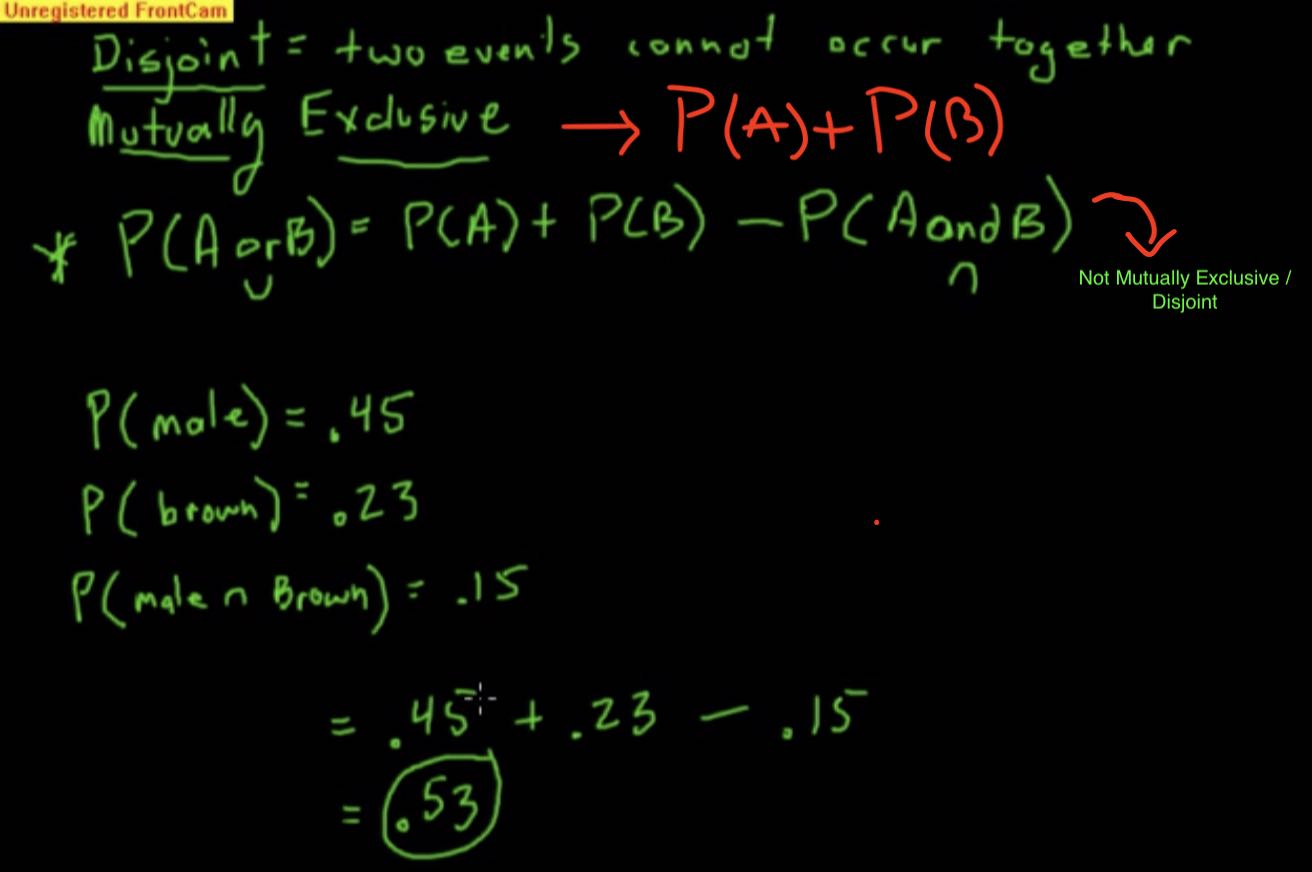 Unregistered FrontCam
Disjoint = two events cannot occur together
Mutually Exclusive → P(A) + P(B)
* P(A or B) = P(A) + P(B) - P(A and B)
∪ ∩
Not Mutually Exclusive /
Disjoint
P(male) = .45
P(brown) = .23
P(male ∩ Brown) = .15
= .45 + .23 - .15
= .53